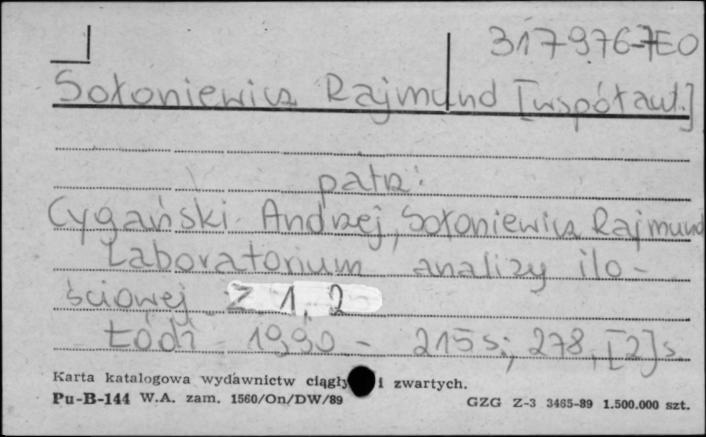 317976-7EO
Sołoniewicz Rajmund [współaut.]
patrz:
Cygański Andrzej, Sołoniewicz Rajmund
Laboratorium analizy ilo-
ściowej Z 1, 2
Łódź 1990 - 215 s.; 278, [2] s.
Karta katalogowa wydawnictw ciągły i zwartych.
Pu-B-144 W.A. zam. 1560/On/DW/89 GZG Z-3 3465-89 1.500.000 szt.